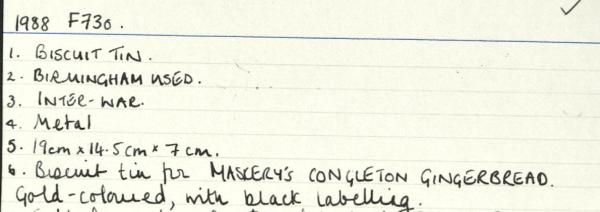 1988 F730.
1. BISCUIT TIN.
2. BIRMINGHAM USED.
3. INTER-WAR.
4. Metal
5. 19cm x 14.5cm x 7cm.
6. Biscuit tin for MASKERY'S CONGLETON GINGERBREAD.
Gold-coloured, with black labelling.